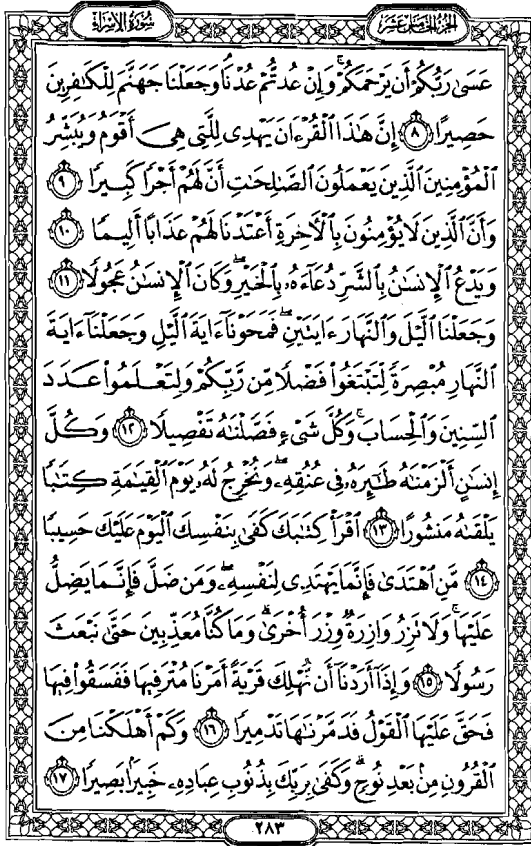 سُورَةُ الإِسْرَاءِ
الجُزْءُ الخَامِسَ عَشَرَ
عَسَىٰ رَبُّكُمْ أَن يَرْحَمَكُمْ ۚ وَإِنْ عُدتُّمْ عُدْنَا وَجَعَلْنَا جَهَنَّمَ لِلْكَـٰفِرِينَ
حَصِيرًا ٨ إِنَّ هَـٰذَا ٱلْقُرْءَانَ يَهْدِى لِلَّتِى هِىَ أَقْوَمُ وَيُبَشِّرُ
ٱلْمُؤْمِنِينَ ٱلَّذِينَ يَعْمَلُونَ ٱلصَّـٰلِحَـٰتِ أَنَّ لَهُمْ أَجْرًا كَبِيرًا ٩
وَأَنَّ ٱلَّذِينَ لَا يُؤْمِنُونَ بِٱلْـَٔاخِرَةِ أَعْتَدْنَا لَهُمْ عَذَابًا أَلِيمًا ١٠
وَيَدْعُ ٱلْإِنسَـٰنُ بِٱلشَّرِّ دُعَآءَهُۥ بِٱلْخَيْرِ ۖ وَكَانَ ٱلْإِنسَـٰنُ عَجُولًا ١١
وَجَعَلْنَا ٱلَّيْلَ وَٱلنَّهَارَ ءَايَتَيْنِ ۖ فَمَحَوْنَآ ءَايَةَ ٱلَّيْلِ وَجَعَلْنَآ ءَايَةَ
ٱلنَّهَارِ مُبْصِرَةً لِّتَبْتَغُوا۟ فَضْلًا مِّن رَّبِّكُمْ وَلِتَعْلَمُوا۟ عَدَدَ
ٱلسِّنِينَ وَٱلْحِسَابَ ۚ وَكُلَّ شَىْءٍ فَصَّلْنَـٰهُ تَفْصِيلًا ١٢ وَكُلَّ
إِنسَـٰنٍ أَلْزَمْنَـٰهُ طَـٰٓئِرَهُۥ فِى عُنُقِهِۦ ۖ وَنُخْرِجُ لَهُۥ يَوْمَ ٱلْقِيَـٰمَةِ كِتَـٰبًا
يَلْقَىٰهُ مَنشُورًا ١٣ ٱقْرَأْ كِتَـٰبَكَ كَفَىٰ بِنَفْسِكَ ٱلْيَوْمَ عَلَيْكَ حَسِيبًا
١٤ مَّنِ ٱهْتَدَىٰ فَإِنَّمَا يَهْتَدِى لِنَفْسِهِۦ ۖ وَمَن ضَلَّ فَإِنَّمَا يَضِلُّ
عَلَيْهَا ۚ وَلَا تَزِرُ وَازِرَةٌ وِزْرَ أُخْرَىٰ ۗ وَمَا كُنَّا مُعَذِّبِينَ حَتَّىٰ نَبْعَثَ
رَسُولًا ١٥ وَإِذَآ أَرَدْنَآ أَن نُّهْلِكَ قَرْيَةً أَمَرْنَا مُتْرَفِيهَا فَفَسَقُوا۟ فِيهَا
فَحَقَّ عَلَيْهَا ٱلْقَوْلُ فَدَمَّرْنَـٰهَا تَدْمِيرًا ١٦ وَكَمْ أَهْلَكْنَا مِنَ
ٱلْقُرُونِ مِنۢ بَعْدِ نُوحٍ ۗ وَكَفَىٰ بِرَبِّكَ بِذُنُوبِ عِبَادِهِۦ خَبِيرًۢا بَصِيرًا ١٧
٢٨٣